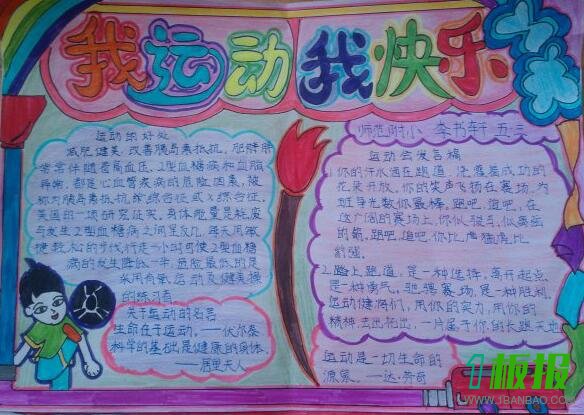 我运动我快乐
运动的好处
减肥健美,改善胰岛素抵抗,肥胖病
常常伴随着高血压、2型血糖病和血脂
异常,都是心血管疾病的危险因素,被
称为胰岛素抵抗综合征或X综合征。
美国的一项研究证实,身体能量是耗度
与发生2型血糖病之间呈反比,每天用敏
捷、轻松的步伐行走一小时可使2型血糖
病的发生降低一半,危险最低的是
采用有氧运动及健美操
的练习者
关于运动的名言
生命在于运动。——伏尔泰
科学的基础是健康的身体。
——居里夫人
师范附小 李书轩 五.三
运动会发言稿
1.你的汗水洒在跑道,浇灌着成功的
花朵开放。你的笑声飞扬在赛场,为
班争光数你最棒。跑吧,追吧,在
这广阔的赛场上,你似骏马,似离弦
的箭。跑吧,追吧,你比虎猛虎比
你强。
2.踏上跑道,是一种选择。离开起点
是一种勇气。驰骋赛场,是一种胜利。
运动健将们,用你的实力,用你的
精神,去开拓出,一片属于你的长跑天地
运动是一切生命的
源泉。——达·芬奇
1板报
WWW.1BANBAO.COM